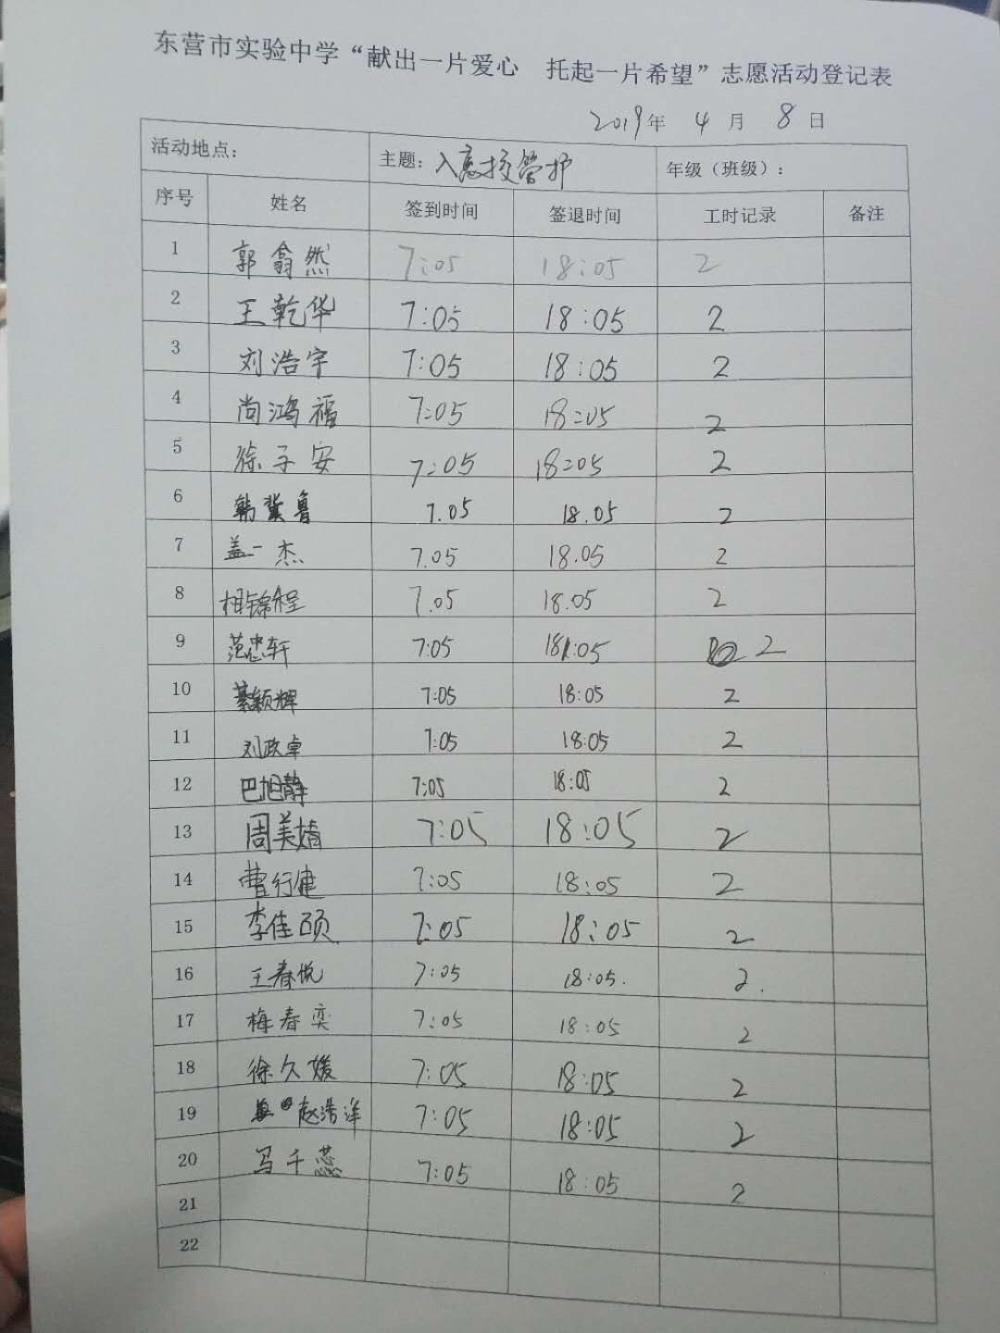 东营市实验中学“献出一片爱心 托起一片希望”志愿活动登记表
2019年 4 月 8 日
活动地点： 主题：入离校管护 年级（班级）：
序号 姓名 签到时间 签退时间 工时记录 备注
1 郭翕然 7:05 18:05 2
2 王乾华 7:05 18:05 2
3 刘浩宇 7:05 18:05 2
4 尚鸿福 7:05 18:05 2
5 徐子安 7:05 18:05 2
6 韩冀鲁 7.05 18.05 2
7 盖一杰 7.05 18.05 2
8 相锦程 7.05 18.05 2
9 范忠轩 7:05 18:05 2
10 綦颖辉 7:05 18:05 2
11 刘政卓 7:05 18:05 2
12 巴旭静 7:05 18:05 2
13 周美婧 7:05 18:05 2
14 曹行健 7:05 18:05 2
15 李佳硕 7:05 18:05 2
16 王春悦 7:05 18:05. 2.
17 梅春奕 7:05 18:05 2
18 徐久媛 7:05 18:05 2
19 赵浩洋 7:05 18:05 2
20 马千蕊 7:05 18:05 2
21
22